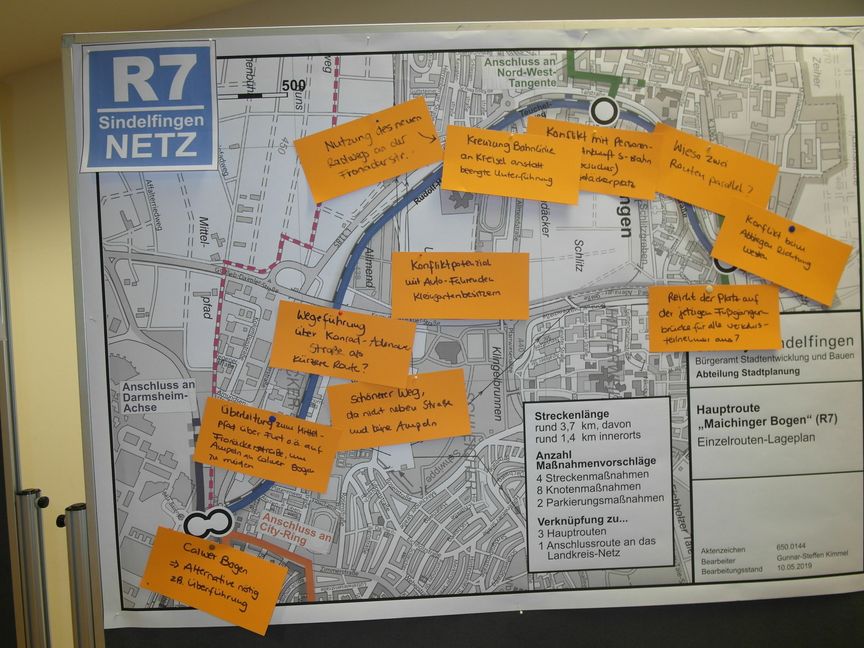 R7
Sindelfingen
NETZ
500
Anschluss an
Nord-West-
Tangente
Nutzung des neuen
Radwegs an der
Fronäckerstr.
Kreuzung Bahnbrücke
an Kreisel anstatt
beengte Unterführung
Konflikt mit Personen-
S-Bahn
Wieso zwei
Routen parallel?
Konflikt beim
Abbiegen Richtung
Westen
Konfliktpotenzial
mit Auto-Fahrenden
Kleingartenbesitzern
Reicht der Platz auf
der jetzigen Fußgänger-
brücke für alle Verkehrs-
teilnehmer aus?
Wegeführung
über Konrad-Adenauer
Straße als
kürzere Route?
schönerer Weg,
da nicht neben Straße
und keine Ampeln
Überleitung zum Mittel-
Pfad über Furt o.ä. auf
Fronäckerstraße, um
Ampeln an Calwer Bogen
zu meiden
Calwer Bogen
⇒ Alternative nötig
z.B. Überführung
Mittel-
pfad
Allmend
Schlitz
Klingelbrunnen
Anschluss an
Darmsheim-
Achse
Anschluss an
City-Ring
Streckenlänge
rund 3,7 km, davon
rund 1,4 km innerorts
Anzahl
Maßnahmenvorschläge
4 Streckenmaßnahmen
8 Knotenmaßnahmen
2 Parkierungsmaßnahmen
Verknüpfung zu...
3 Hauptrouten
1 Anschlussroute an das
Landkreis-Netz
ndelfingen
Bürgeramt Stadtentwicklung und Bauen
Abteilung Stadtplanung
Hauptroute
„Maichinger Bogen“ (R7)
Einzelrouten-Lageplan
Aktenzeichen 650.0144
Bearbeiter Gunnar-Steffen Kimmel
Bearbeitungsstand 10.05.2019